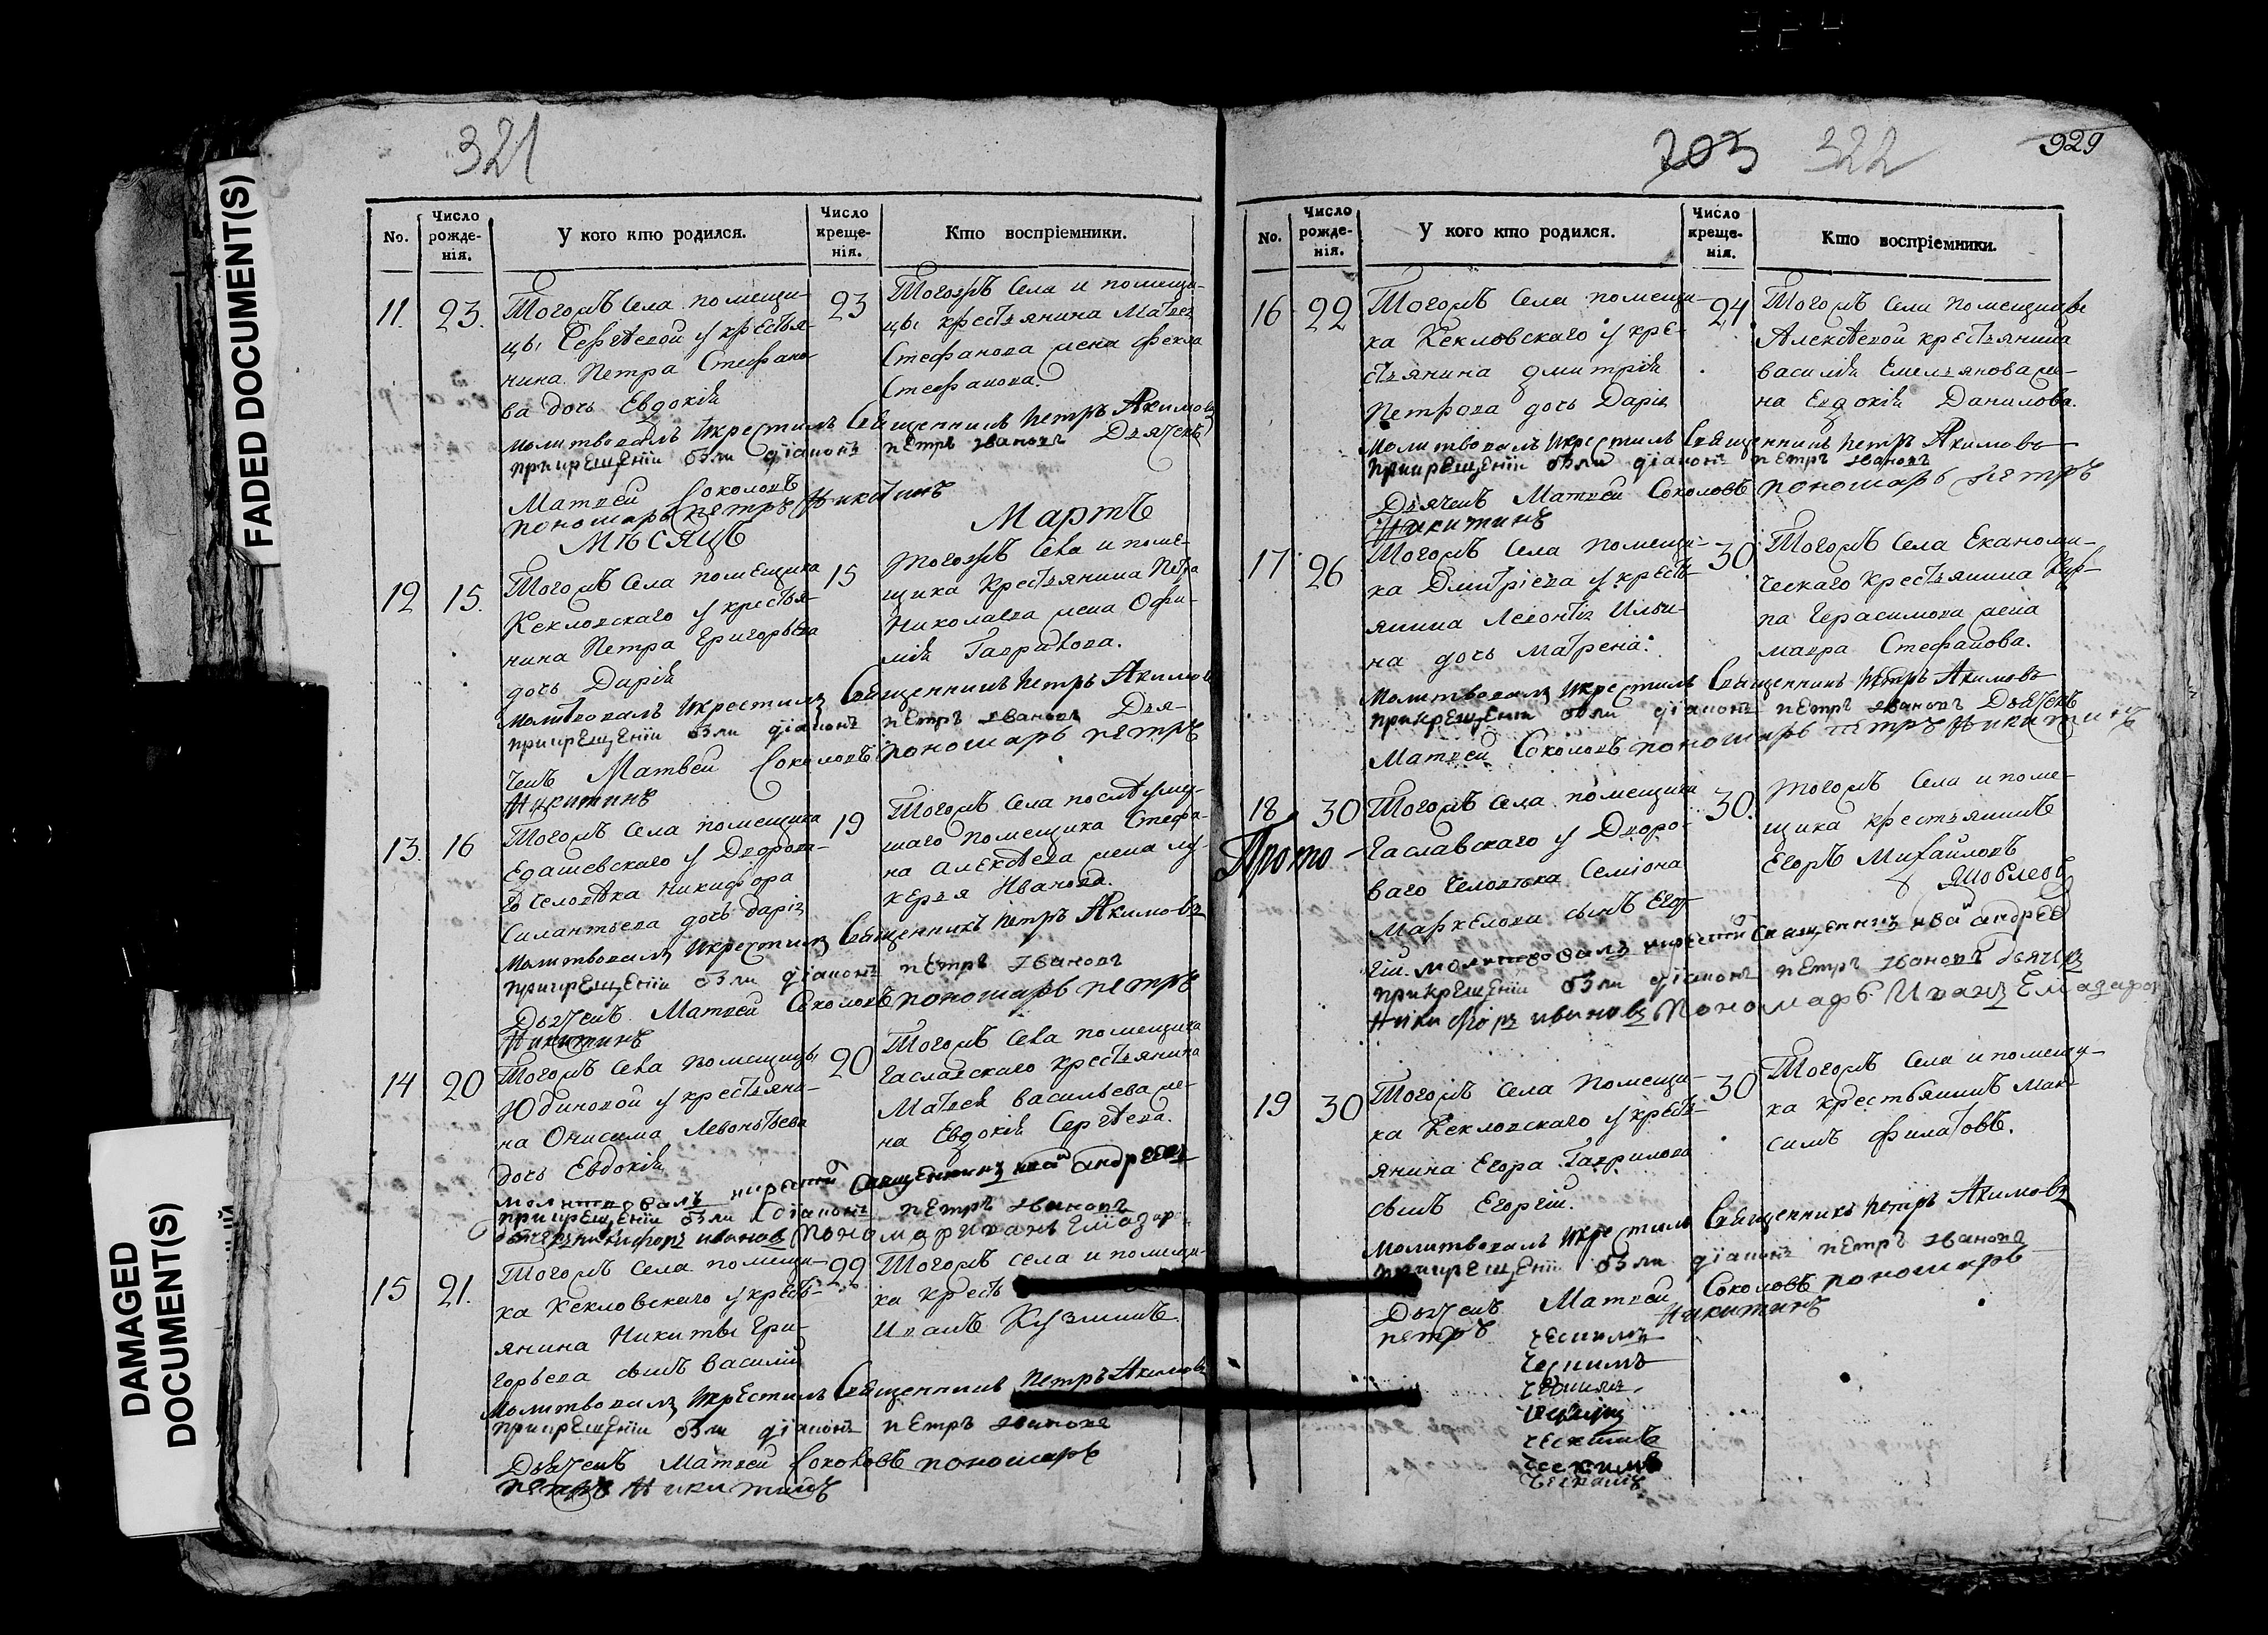 FADED DOCUMENT(S)
DAMAGED DOCUMENT(S)
321
No.
Число рожде-нія.
У кого кто родился.
Число креще-нія.
Кто воспріемники.
11.
23.
Тогожъ Села помещи-
цы Сергѣевой у крестья-
нина Петра Стефано-
ва дочь Евдокія
23
Тогожъ Села и помещи-
цы крестьянина Матвея
Стефанова жена Фекла
Стефанова.
молитвовалъ икрестилъ Священникъ петръ Акимовъ
прикрещеніи были діаконъ петръ ивановъ Дьячекъ
Матвей Соколовъ
пономарь петръ Никитинъ
Мѣсяцъ Мартъ
12
15.
Тогожъ Села помещика
Кекловскаго у крестья-
нина Петра Григорьева
дочь Дарія
15
Тогожъ Села и поме-
щика Крестьянина Петра
Николаева жена Офи-
мія Гаврилова.
молитвовалъ икрестилъ Священникъ петръ Акимовъ
прикрещеніи были діаконъ петръ ивановъ Дья-
чекъ Матвей Соколовъ пономарь петръ
Никитинъ
13.
16
Тогожъ Села помещика
Едашевскаго у Дворова-
го Человѣка Никифора
Силантьева дочь дарія
19
Тогожъ Села послѣ умер-
шаго помещика Стефа-
на Алексѣева жена лу-
керья Иванова.
молитвовалъ икрестилъ Священникъ петръ Акимовъ
прикрещеніи были діаконъ петръ ивановъ
Дьячекъ Матвей Соколовъ пономарь петръ
Никитинъ
14
20
Тогожъ Села помещицы
Юдиновой у крестьяни-
на Онисима Левонтьева
дочь Евдокія
20
Тогожъ Села помещика
Гаславскаго крестьянина
Матвея васильева же-
на Евдокія Сергѣева.
молитвовалъ икрести Священникъ ива андреевъ
прикрещеніи были діаконъ петръ ивановъ
дьячекъ никифоръ ивановъ Пономарь Иванъ
15
21.
Тогожъ Села помещи-
ка Кекловскаго у кресть-
янина Никиты Гри-
горьева сынъ василій
22
Тогожъ села и помещи-
ка Кресть
Иванъ Кузминъ.
молитвовалъ икрестилъ Священникъ петръ Акимовъ
прикрещеніи были діаконъ петръ ивановъ
Дьячекъ Матвей Соколовъ пономарь
петръ Никитинъ
203 322 929
No.
Число рожде-нія.
У кого кто родился.
Число креще-нія.
Кто воспріемники.
16
22
Тогожъ Села помещи-
ка Кекловскаго у кре-
стьянина дмитрія
Петрова дочь Дарія
24.
Тогожъ Села помещицы
Алексѣевой крестьянина
василія Емельянова же-
на Евдокія Данилова.
молитвовалъ икрестилъ Священникъ петръ Акимовъ
прикрещеніи были діаконъ петръ ивановъ
Дьячекъ Матвей Соколовъ пономарь петръ
Никитинъ
17
26
Тогожъ Села помещи-
ка Дмитріева у кресть-
янина Левонтія Ильи-
на дочь Матрена.
30
Тогожъ Села Економи-
ческаго крестьянина Кар-
па Герасимова жена
мавра Стефанова.
молитвовалъ икрестилъ Священникъ петръ Акимовъ
прикрещеніи были діаконъ петръ ивановъ Дьячекъ
Матвей Соколовъ пономарь петръ Никитинъ
18
30
Тогожъ Села помещика
Гаславскаго у Дворо-
ваго Человѣка Семіона
Маркелова сынъ Егор-
гій.
30.
Тогожъ Села и поме-
щика крестьянинъ
Егоръ Михайловъ
Прото
молитвовалъ икрести Священникъ ива андрее
прикрещеніи были діаконъ петръ ивановъ дьячекъ
Никифоръ ивановъ Пономарь Иванъ
19
30
Тогожъ Села Помещи-
ка Кекловскаго у кресть-
янина Егора Гаврилова
сынъ Егоргій.
30
Тогожъ Села и помещи-
ка крестьянинъ Мак-
симъ филатовъ.
молитвовалъ икрестилъ Священникъ петръ Акимовъ
прикрещеніи были діаконъ петръ ивановъ
Дьячекъ Матвей Соколовъ пономарь
петръ Никитинъ